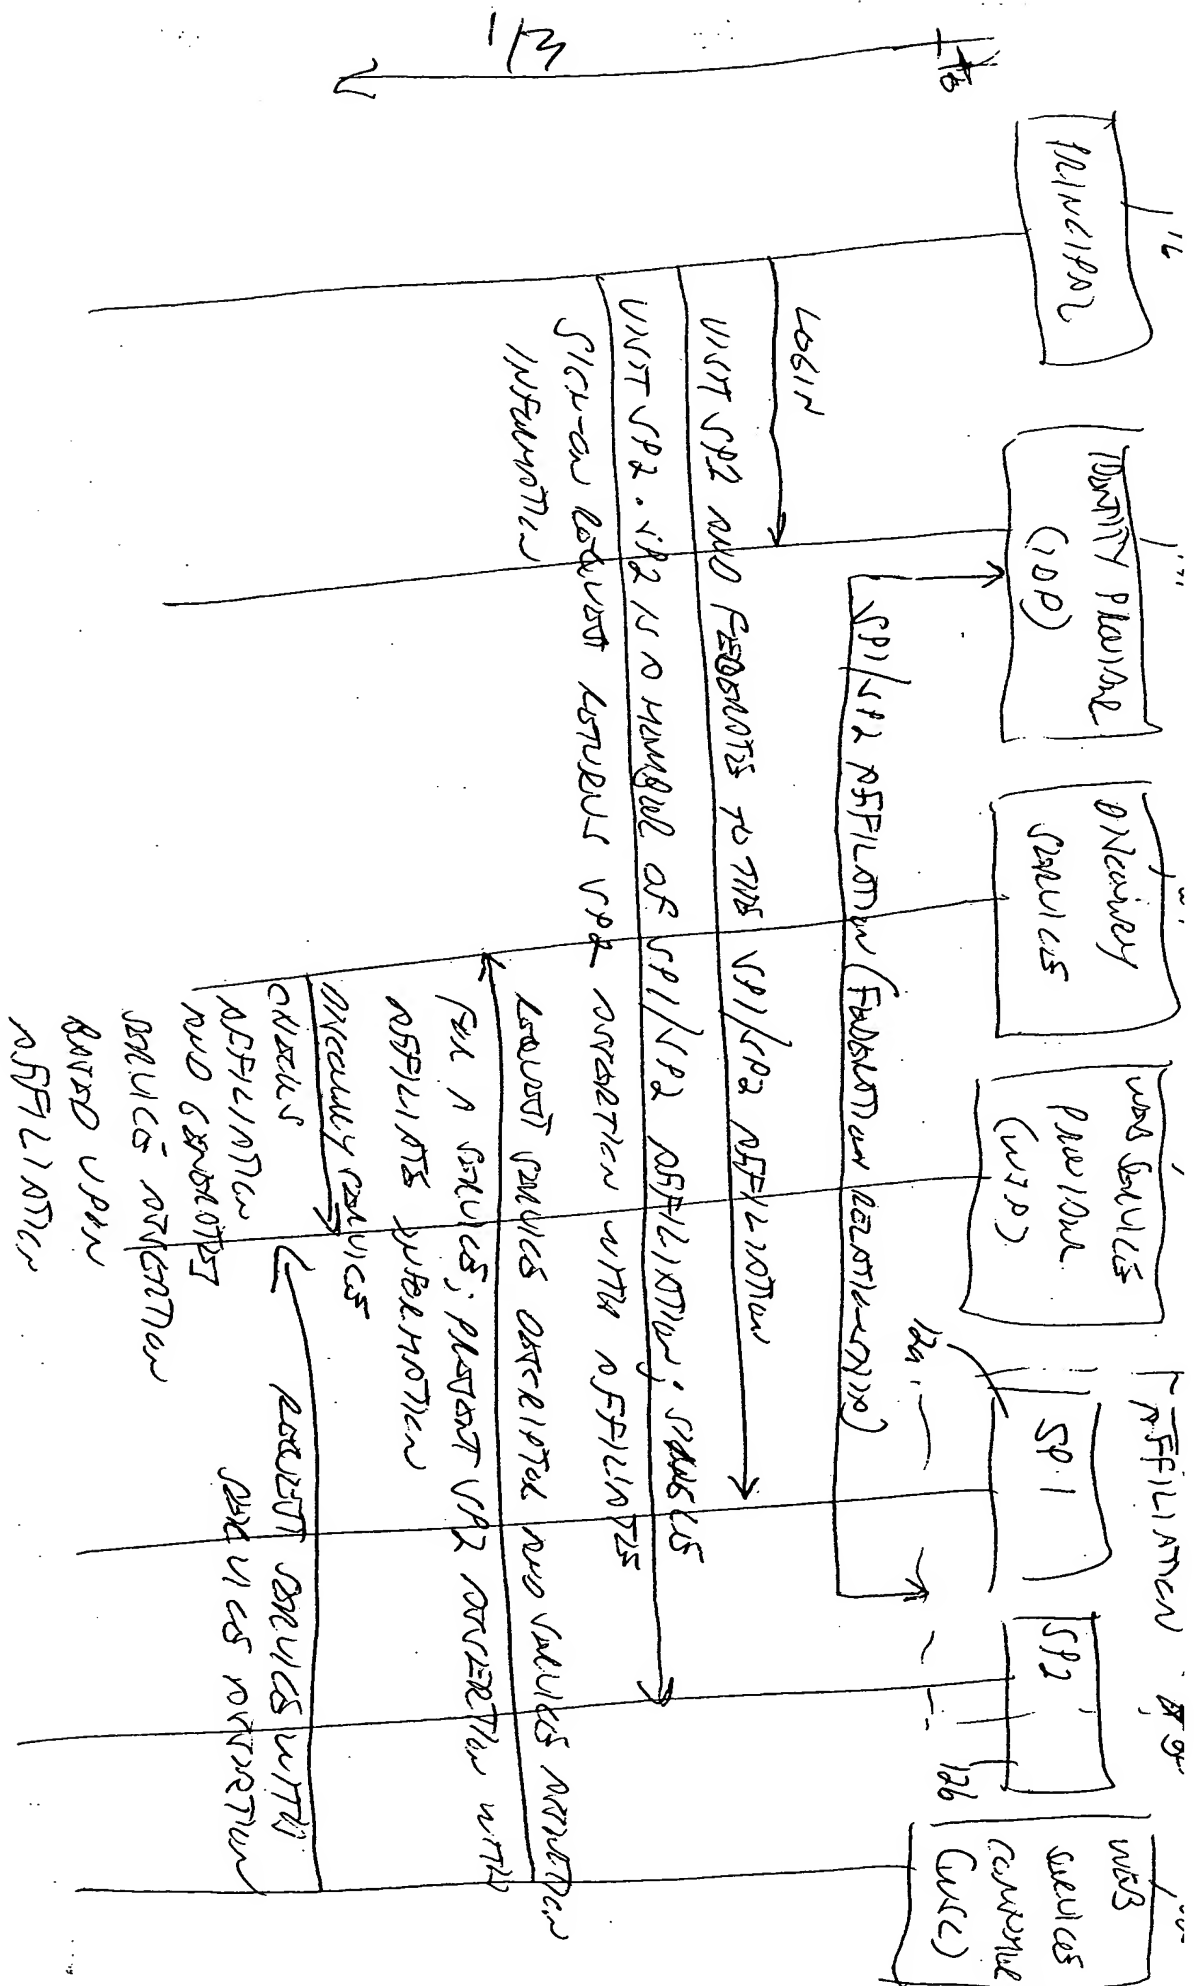 16
PRINCIPAL
IDENTITY PROVIDER
(IDP)
DISCOVERY
SERVICES
WEB SERVICES
PROVIDER
(WSP)
AFFILIATION
SP1
SP2
WEB
SERVICES
CONSUMER
(WSC)
12a
12b
SP1/SP2 AFFILIATION (FEDERATION RELATIONSHIP)
LOGIN
VISIT SP1 AND FEDERATES TO THE SP1/SP2 AFFILIATION
VISIT SP2. SP2 IS A MEMBER OF SP1/SP2 AFFILIATION; SINGLE
SIGN-ON REQUEST RETURNS SP2 ASSERTION WITH AFFILIATE
INFORMATION
REQUEST SERVICE DESCRIPTOR AND SERVICE ASSERTION
FOR A SERVICE; PRESENT SP2 ASSERTION WITH
AFFILIATE INFORMATION
DISCOVERY SERVICES
CHECKS
AFFILIATION
AND GENERATES
SERVICE ASSERTION
BASED UPON
AFFILIATION
REQUEST SERVICE WITH
SERVICE ASSERTION